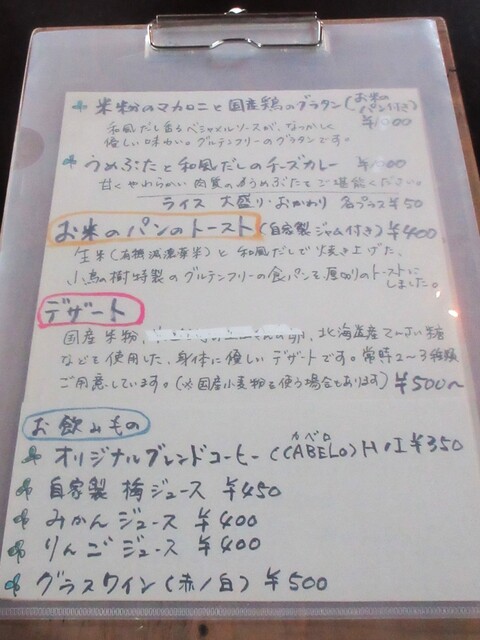 米粉のマカロニと国産鶏のグラタン(お米のパン付き) ¥1000
和風だし香るベシャメルソースが、なつかしく
優しい味わい。グルテンフリーのグラタンです。
うめぶたと和風だしのチーズカレー ¥1000
甘くやわらかい肉質のうめぶたをご堪能ください。
ライス 大盛り・おかわり 各プラス¥50
お米のパンのトースト(自家製ジャム付き) ¥400
生米(有機減農薬米)と和風だしで焼き上げた、
小鳥の樹特製のグルテンフリーの食パンを厚切りのトーストに
しました。
デザート
国産米粉、北海道産てんさい糖
などを使用した、身体に優しいデザートです。常時2〜3種類
ご用意しています。(※国産小麦粉を使う場合もあります) ¥500〜
お飲みもの
オリジナルブレンドコーヒー(CABELOカベロ) H・I ¥350
自家製 梅ジュース ¥450
みかんジュース ¥400
りんごジュース ¥400
グラスワイン(赤/白) ¥500